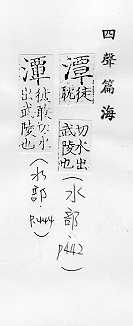 四聲篇海
潭徒耽切水出武陵也（水部 P.442）
潭徒敢切水出武陵也（水部 P.444）